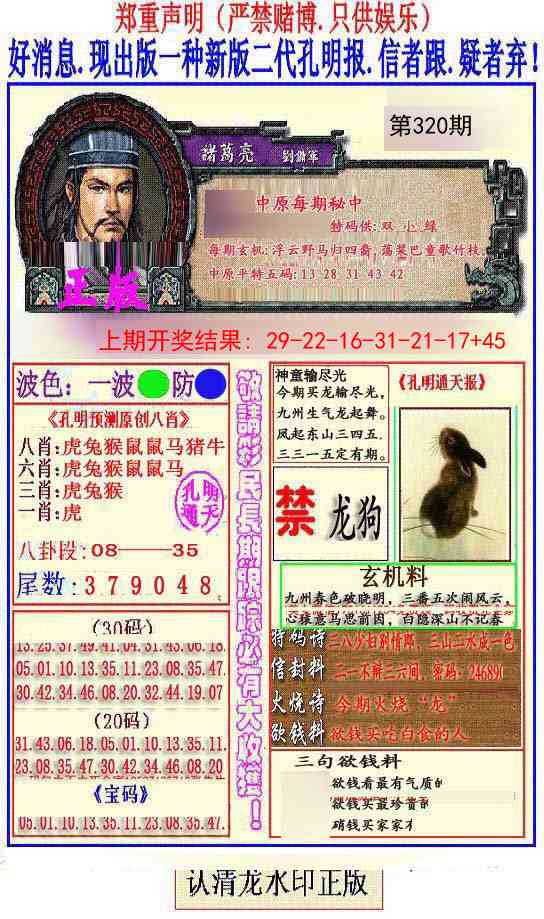 郑重声明（严禁赌博.只供娱乐）
好消息.现出版一种新版二代孔明报.信者跟.疑者弃!
第320期
諸葛亮 劉備軍
中原每期秘中
特码供:双 小 绿
每期玄机:浮云野马归四裔,荡桨巴童歌竹枝.
中原平特五码:13 28 31 43 42
正版
上期开奖结果: 29-22-16-31-21-17+45
波色：一波 防
《孔明预测原创八肖》
八肖:虎兔猴鼠鼠马猪牛
六肖:虎兔猴鼠鼠马
三肖:虎兔猴
一肖:虎
孔明
通天
八卦段:08——35
尾数:379048.
(30码)
13.25.37.49.41.04.31.43.06.18.
05.01.10.13.35.11.23.08.35.47.
30.42.34.46.08.20.32.44.19.07
(20码)
31.43.06.18.05.01.10.13.35.11.
23.08.35.47.30.42.34.46.08.20
《宝码》
05.01.10.13.35.11.23.08.35.47.
敬請彩民長期跟踪必有大收獲！
神童输尽光
今期买龙输尽光,
九州生气龙起舞。
凤起东山三四五.
三三一五定有期。
《孔明通天报》
禁 龙狗
玄机料
九州春色破晓明，三番五次闹风云，
心猿意马思前因，百隐深山不记春
特码诗 三八少妇别情郎，三山二水成一色
信封料 二一不辩三六间，密码：24689
火烧诗 今期火烧“龙”
欲钱料 欲钱买吃白食的人
三句欲钱料
欲钱看最有气质的
欲钱买最珍贵的
硝钱买家家才
认清龙水印正版